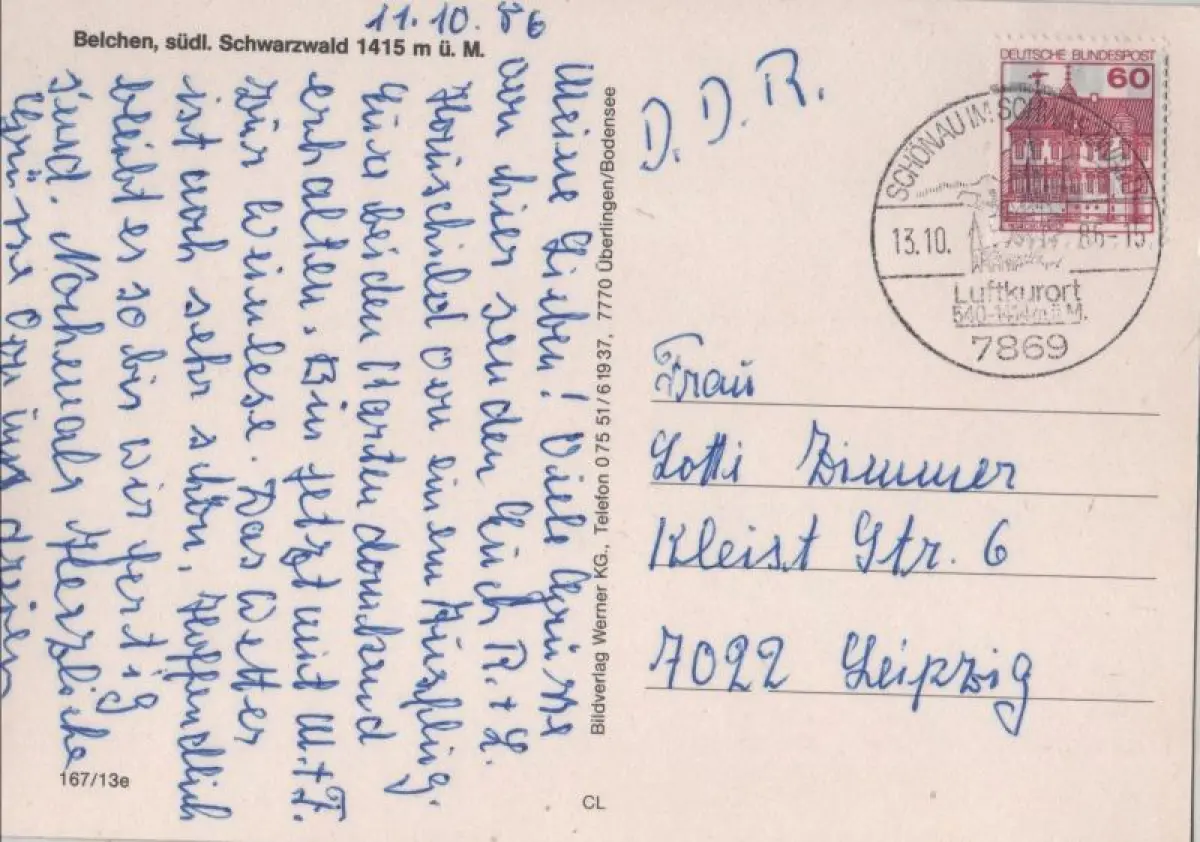 Belchen, südl. Schwarzwald 1415 m ü. M.
11.10.86
Meine Lieben! Viele Grüsse
von hier senden Euch R. + L.
von einem Ausflug.
Eure beiden Karten dankend
erhalten. Bin jetzt mit M. + F.
zur Weinlese. Das Wetter
ist noch sehr schön, Hoffendlich
bleibt es so bis wir fertig
sind. Nochmals Herzliche
Grüsse von uns dreien
167/13e
Bildverlag Werner KG., Telefon 0 75 51/6 19 37, 7770 Überlingen/Bodensee
CL
D. D. R.
DEUTSCHE BUNDESPOST
60
SCHÖNAU IM SCHWARZWALD
13.10. 86-15
Luftkurort
540-1414 m ü. M.
7869
Frau
Lotti Zimmer
Kleist Str. 6
7022 Leipzig